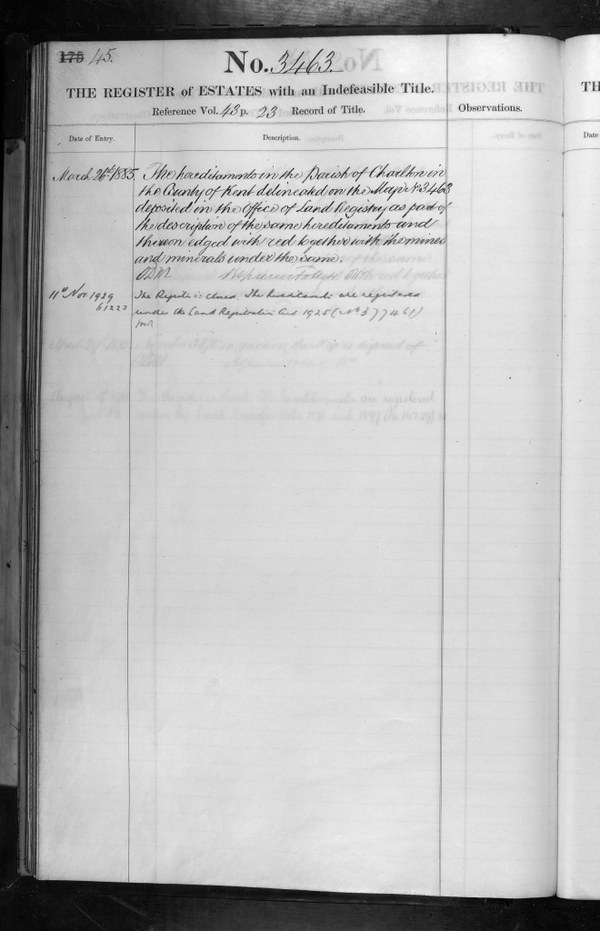 175 45.
No. 3463.
THE REGISTER of ESTATES with an Indefeasible Title.
Reference Vol. 43 p. 23 Record of Title.
Observations.
Date of Entry.
Description.
March 26th 1885.
The hereditaments in the Parish of Charlton in
the County of Kent delineated on the Map No 3463
deposited in the Office of Land Registry as part of
the description of the same hereditaments and
thereon edged with red together with the mines
and minerals under the same.
11th Nov 1929
61222
The Register is closed. The hereditaments are registered
under the Land Registration Act 1925 (No 377461)
TH
Date